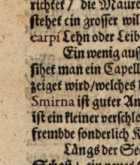 richtet / die Maure
stehet ein grosser wi
carpi Lehn oder Leib
Ein wenig auss
sihet man ein Capell
zeiget wird / welches
Smirna ist guter An
ist ein kleiner verschlo
frembde sonderlich K
Längs der See